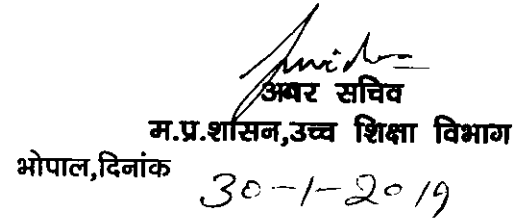 अवर सचिव
म.प्र.शासन,उच्च शिक्षा विभाग
भोपाल,दिनांक 30-1-2019